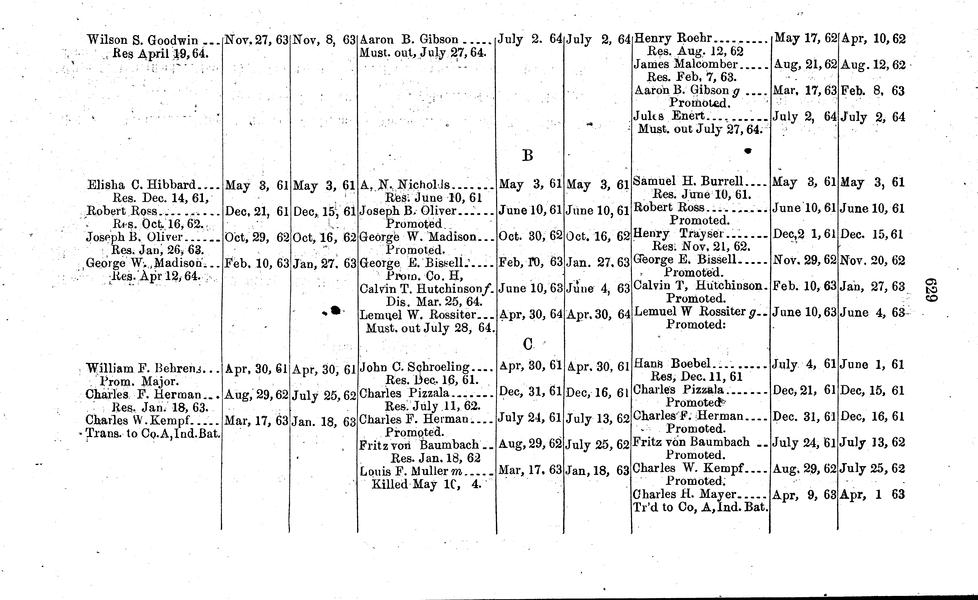 Wilson S. Goodwin ... Nov. 27, 63 Nov, 8, 63 Aaron B. Gibson ... July 2. 64 July 2, 64 Henry Roehr ... May 17, 62 Apr, 10, 62
Res April 19, 64. Must. out, July 27, 64. Res. Aug. 12, 62
James Malcomber ... Aug, 21, 62 Aug. 12, 62
Res. Feb, 7, 63.
Aaron B. Gibson g ... Mar. 17, 63 Feb. 8, 63
Promoted.
Jules Enert ... July 2, 64 July 2, 64
Must. out July 27, 64.
B
Elisha C. Hibbard ... May 3, 61 May 3, 61 A, N. Nichols ... May 3, 61 May 3, 61 Samuel H. Burrell ... May 3, 61 May 3, 61
Res. Dec. 14, 61, Res. June 10, 61 Res. June 10, 61.
Robert Ross ... Dec, 21, 61 Dec, 15, 61 Joseph B. Oliver ... June 10, 61 June 10, 61 Robert Ross ... June 10, 61 June 10, 61
Res. Oct. 16, 62. Promoted Promoted.
Joseph B. Oliver ... Oct, 29, 62 Oct, 16, 62 George W. Madison ... Oct. 30, 62 Oct. 16, 62 Henry Trayser ... Dec,2 1, 61 Dec. 15, 61
Res. Jan, 26, 63. Promoted. Res. Nov. 21, 62.
George W. Madison ... Feb. 10, 63 Jan, 27, 63 George E. Bissell ... Feb, 10, 63 Jan. 27, 63 George E. Bissell ... Nov. 29, 62 Nov. 20, 62
Res. Apr 12, 64. Prom. Co. H, Promoted.
Calvin T. Hutchinson f. June 10, 63 June 4, 63 Calvin T, Hutchinson. Feb. 10, 63 Jan, 27, 63
Dis. Mar. 25, 64. Promoted.
Lemuel W. Rossiter ... Apr, 30, 64 Apr. 30, 64 Lemuel W Rossiter g ... June 10, 63 June 4, 63
Must. out July 28, 64. Promoted:
629
C
William F. Behrens ... Apr, 30, 61 Apr, 30, 61 John C. Schroeling ... Apr, 30, 61 Apr. 30, 61 Hans Boebel ... July 4, 61 June 1, 61
Prom. Major. Res. Dec. 16, 61. Res, Dec. 11, 61
Charles F. Herman ... Aug, 29, 62 July 25, 62 Charles Pizzala ... Dec, 31, 61 Dec, 16, 61 Charles Pizzala ... Dec, 21, 61 Dec, 15, 61
Res. Jan. 18, 63. Res. July 11, 62. Promoted
Charles W. Kempf ... Mar, 17, 63 Jan. 18, 63 Charles F. Herman ... July 24, 61 July 13, 62 Charles F. Herman ... Dec. 31, 61 Dec, 16, 61
Trans. to Co. A, Ind. Bat. Promoted. Promoted.
Fritz von Baumbach ... Aug, 29, 62 July 25, 62 Fritz von Baumbach ... July 24, 61 July 13, 62
Res. Jan. 18, 62 Promoted.
Louis F. Muller m ... Mar, 17, 63 Jan, 18, 63 Charles W. Kempf ... Aug. 29, 62 July 25, 62
Killed May 1 , 4. Promoted.
Charles H. Mayer ... Apr, 9, 63 Apr, 1 63
Tr'd to Co, A, Ind. Bat.